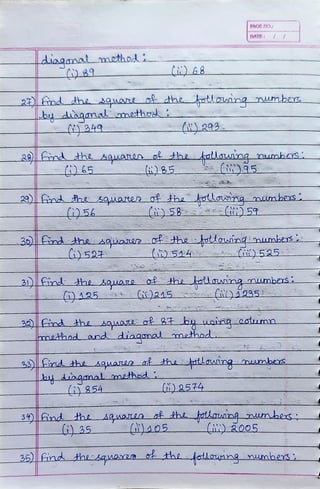 PAGE NO.:
DATE: / /
diagonal method :
(i) 89 (ii) 68
27) Find the square of the following numbers
by diagonal method :
(i) 349 (ii) 293
28) Find the squares of the following numbers :
(i) 65 (ii) 85 (iii) 95
29) Find the squares of the following numbers :
(i) 56 (ii) 58 (iii) 59
30) Find the squares of the following numbers :
(i) 527 (ii) 514 (iii) 525
31) Find the square of the following numbers :
(i) 125 (ii) 215 (iii) 1235
32) Find the square of 87 by using column
method and diagonal method.
33) Find the squares of the following numbers
by diagonal method :
(i) 854 (ii) 2574
34) Find the squares of the following numbers :
(i) 35 (ii) 105 (iii) 2005
35) Find the squares of the following numbers :